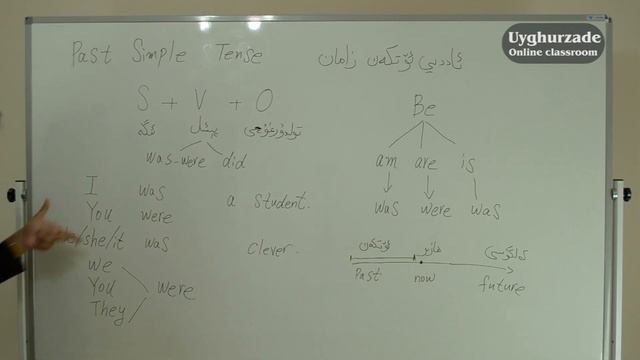 Uyghurzade
Online classroom
Past Simple Tense ئاددىي ئۆتكەن زامان
S + V + O
ئىگە پېئىل تولدۇرغۇچى
was-were did
I was a student.
You were
/she/it was clever.
we
You were
They
Be
am are is
was were was
ئۆتكەن ھازىر كەلگۈسى
Past now future